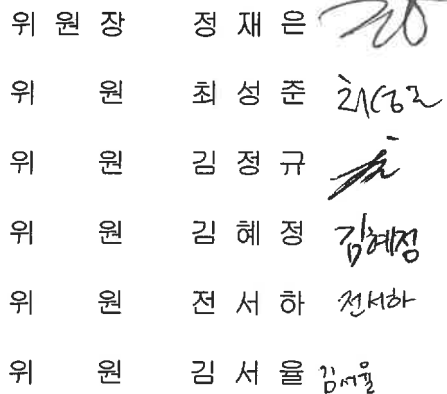 위 원 장 정 재 은
위 원 최 성 준 최성준
위 원 김 정 규
위 원 김 혜 정 김혜정
위 원 전 서 하 전서하
위 원 김 서 율 김서율